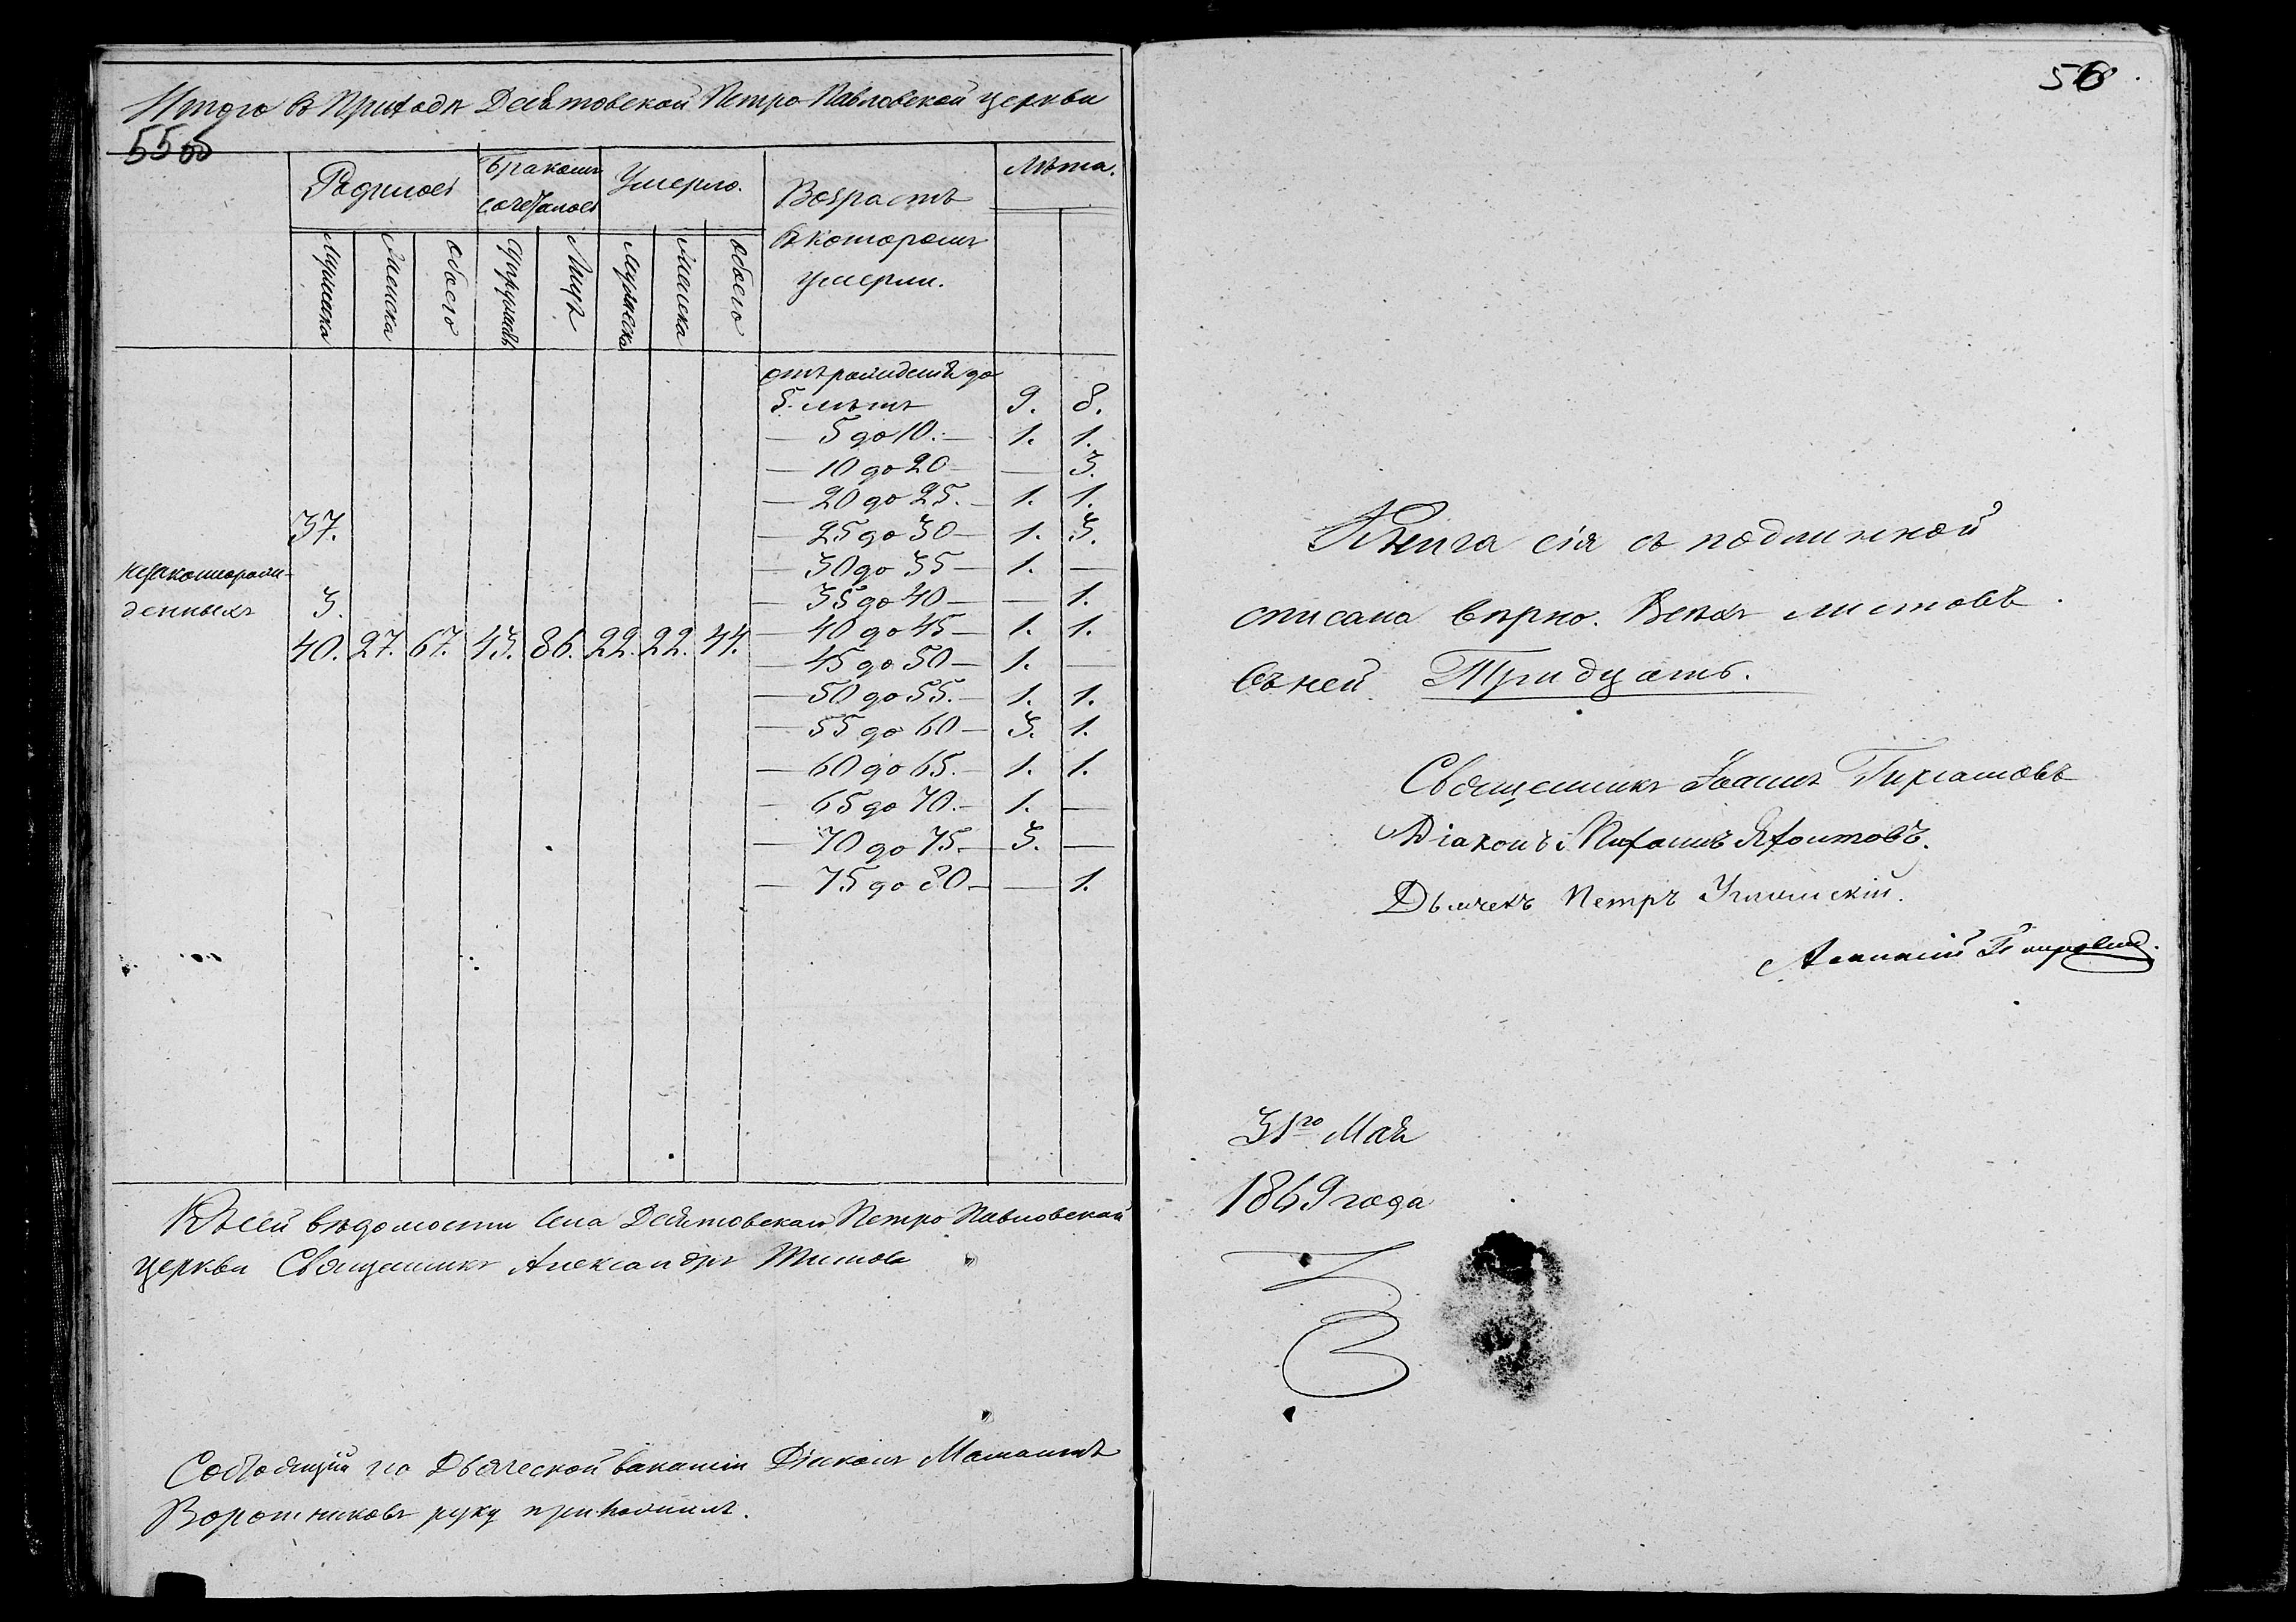 Итого въ Приходѣ Десятовской Петро-Павловской церкви
55об
Родилось
Бракомъ
сочеталось
Умерло.
Возрастъ
въ которомъ
умерли.
Лѣта.
Мужеска
Женска
Обоего
Супружествъ
Лицъ
Мужеска
Женска
Обоего
отъ рожденія до
5. лѣтъ 9. 8.
— 5 до 10. — 1. 1.
— 10 до 20 — — 3.
— 20 до 25. — 1. 1.
37. — 25 до 30 — 1. 3.
— 30 до 35 — 1. —
незаконорож-
денныхъ 3. — 35 до 40 — — 1.
— 40 до 45 — 1. 1.
40. 27. 67. 43. 86. 22. 22. 44.
— 45 до 50 — 1. —
— 50 до 55. — 1. 1.
— 55 до 60 — 3. 1.
— 60 до 65. — 1. 1.
— 65 до 70. — 1. —
— 70 до 75. — 3. —
— 75 до 80 — — 1.
Къ сей вѣдомости села Десятовскаго Петро Павловской
церкви Священникъ Александръ Титовъ
Состоящій на Дьяческой вакансіи Діаконъ
Воротниковъ руку приложилъ.
56
Книга сія съ подлинной
списана вѣрно. Всѣхъ листовъ
въ ней Тридцать.
Священникъ Іоаннъ
Діаконъ
Дьячекъ Петръ
31го Мая
1869 года